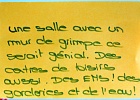 une salle avec un
mur de grimpe ce
serait génial. Des
centres de loisirs
aussi. Des EMS! des
garderies et de l'eau!